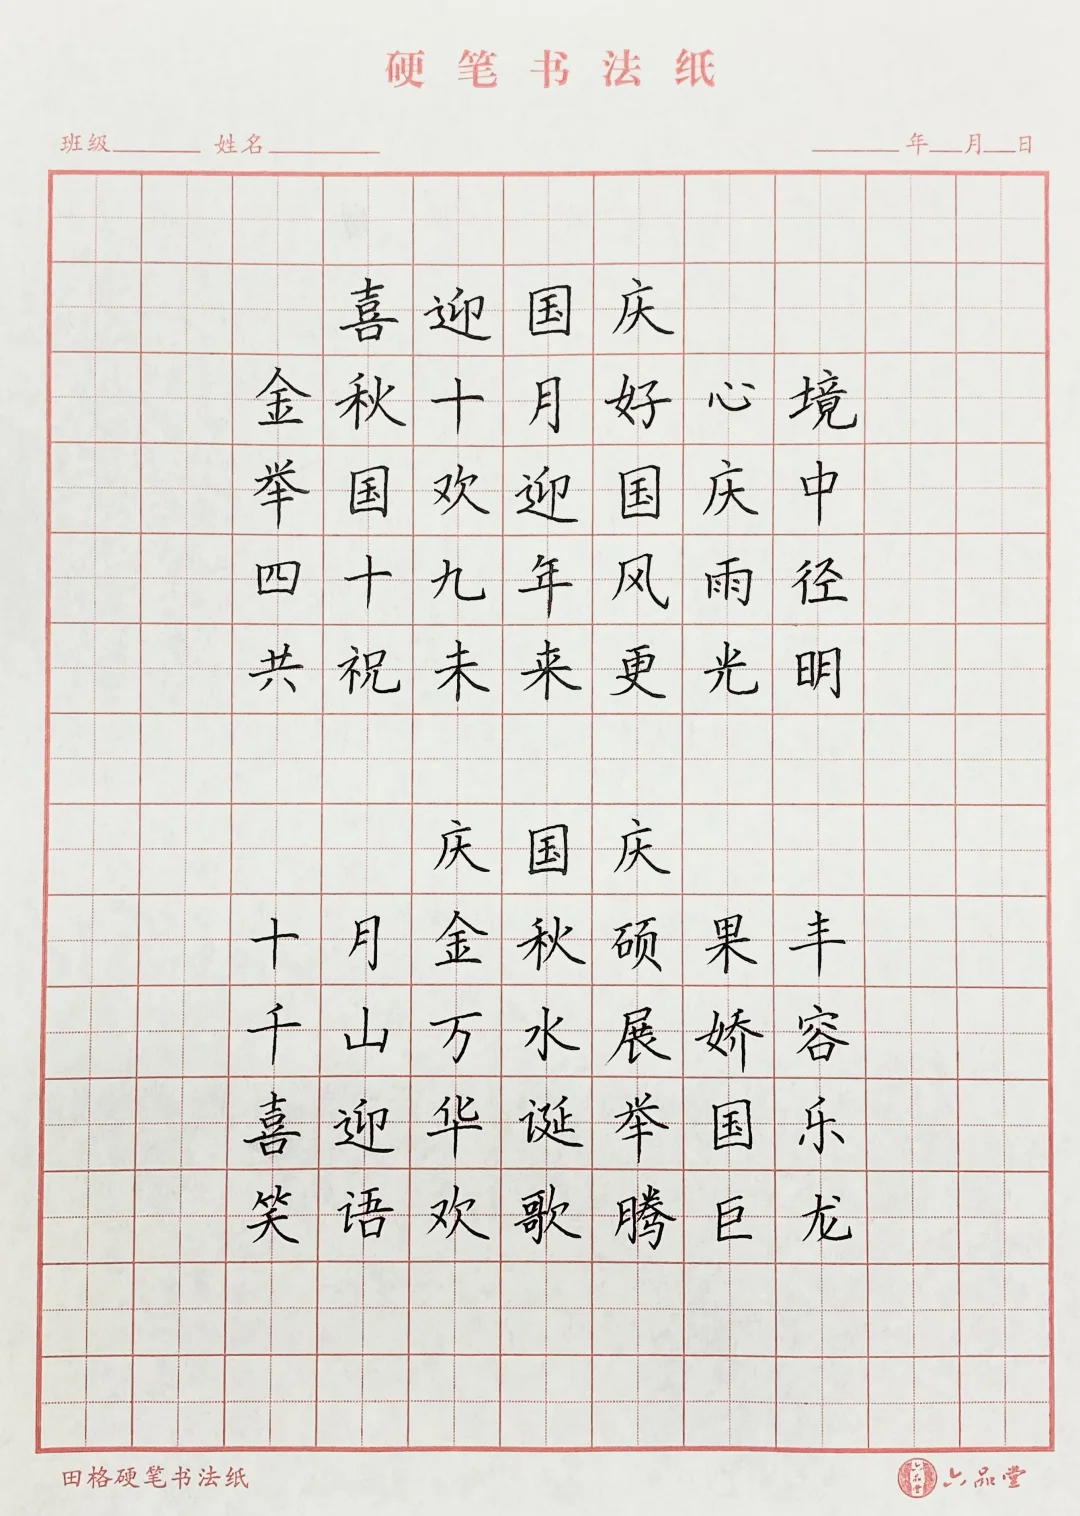 硬笔书法纸
班级 姓名 年 月 日
喜迎国庆
金秋十月好心境
举国欢迎国庆中
四十九年风雨径
共祝未来更光明
庆国庆
十月金秋硕果丰
千山万水展娇容
喜迎华诞举国乐
笑语欢歌腾巨龙
田格硬笔书法纸 六品堂 六品堂